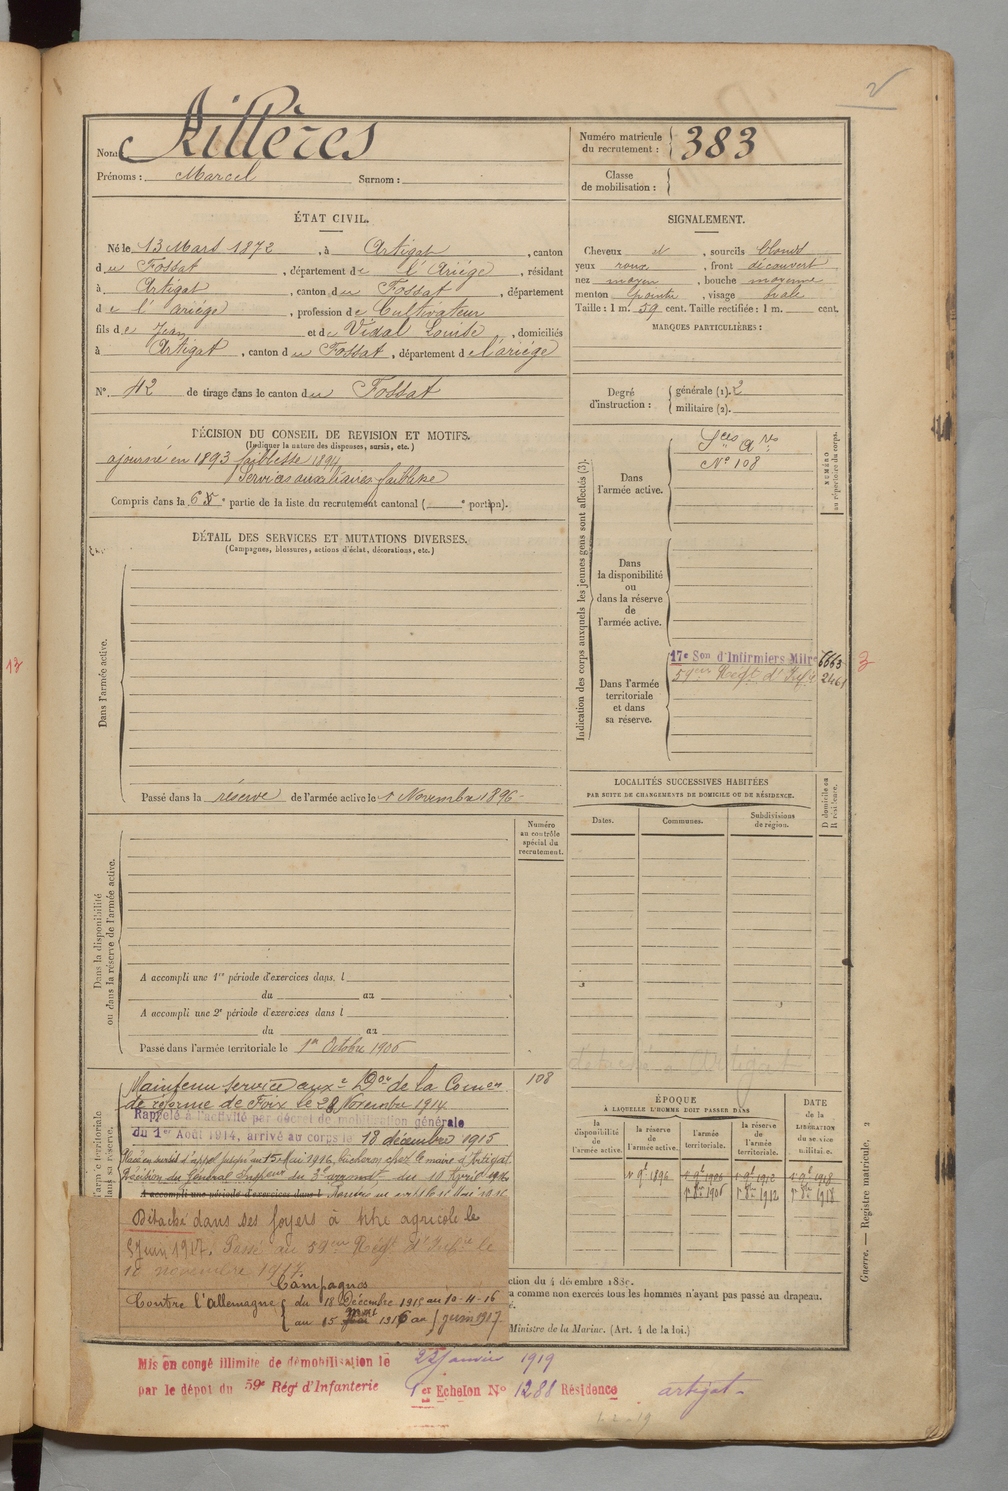 2
Nom: Rillères
Prénoms: Marcel Surnom:
Numéro matricule du recrutement: 383
Classe de mobilisation:
ÉTAT CIVIL.
Né le 13 Mars 1872, à Artigat, canton
du Fossat, département de l'Ariège, résidant
à Artigat, canton du Fossat, département
de l'ariège, profession de Cultivateur
fils de Jean et de Vidal Louise, domiciliés
à Artigat, canton du Fossat, département de l'ariège
N° 42 de tirage dans le canton du Fossat
SIGNALEMENT.
Cheveux et, sourcils blonds
yeux roux, front découvert
nez moyen, bouche moyenne
menton pointu, visage ovale
Taille: 1 m. 59 cent. Taille rectifiée: 1 m. cent.
MARQUES PARTICULIÈRES:
Degré d'instruction: générale (1). 2
militaire (2).
DÉCISION DU CONSEIL DE REVISION ET MOTIFS.
(Indiquer la nature des dispenses, sursis, etc.)
ajourné en 1893 faiblesse 1894
Services auxiliaires faiblesse
Compris dans la 6e partie de la liste du recrutement cantonal ( e portion).
DÉTAIL DES SERVICES ET MUTATIONS DIVERSES.
(Campagnes, blessures, actions d'éclat, décorations, etc.)
Dans l'armée active.
Passé dans la réserve de l'armée active le 1 Novembre 1896
Indication des corps auxquels les jeunes gens sont affectés (3).
NUMÉRO au répertoire du corps.
Dans l'armée active.
Sces ares
N° 108
Dans la disponibilité ou dans la réserve de l'armée active.
Dans l'armée territoriale et dans sa réserve.
17e Son d'Infirmiers Mitres 6663 3
59me Régt d'Infie 2461
13
LOCALITÉS SUCCESSIVES HABITÉES
PAR SUITE DE CHANGEMENTS DE DOMICILE OU DE RÉSIDENCE.
Dates. Communes. Subdivisions de région.
D domicile ou R résidence.
Numéro au contrôle spécial du recrutement.
Dans la disponibilité ou dans la réserve de l'armée active.
A accompli une 1re période d'exercices dans l
du au
A accompli une 2e période d'exercices dans l
du au
Passé dans l'armée territoriale le 1er Octobre 1906
Maintenu service auxre Don de la Comon 108
de réforme de Foix le 28 Novembre 1914
Rappelé à l'activité par décret de mobilisation générale
du 1er Août 1914, arrivé au corps le 18 décembre 1915
Placé en sursis d'appel jusqu'au 15 Mai 1916, bucheron chez le maire d'Artigat.
A accompli une période d'exercices dans l
Détaché dans ses foyers à titre agricole le
5 Juin 1917. Passé au 59me Régt d'Infie le
10 novembre 1917.
Campagnes
Contre l'Allemagne du 18 Décembre 1915 au 10-4-16
au 15 mai 1916 au 4 juin 1917
ÉPOQUE
À LAQUELLE L'HOMME DOIT PASSER DANS
la disponibilité de l'armée active. la réserve de l'armée active. l'armée territoriale. la réserve de l'armée territoriale.
DATE de la LIBÉRATION du service militaire.
1 9bre 1896 1 9bre 1906 1 9bre 1912 1 9bre 1918
1r 8bre 1906 1r 8bre 1912 1r 8bre 1918
ction du 4 décembre 188
a comme non exercés tous les hommes n'ayant pas passé au drapeau.
Ministre de la Marine. (Art. 4 de la loi.)
Guerre. — Registre matricule. 2
Mis en congé illimité de démobilisation le 22 Janvier 1919
par le dépôt du 59e Rég' d'Infanterie 1er Echelon N° 1288 Résidence artigat
1-2-19